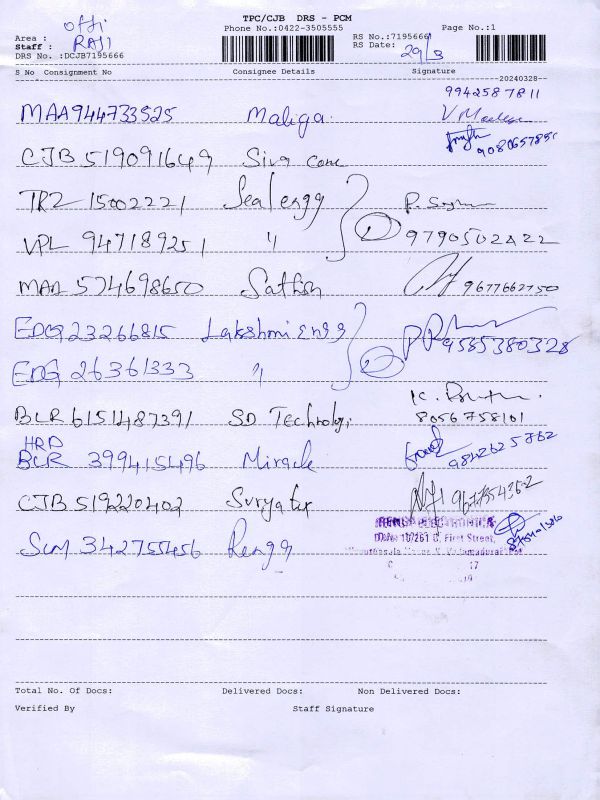 TPC/CJB DRS - PCM
Phone No.:0422-3505555
Page No.:1
Area : Offi
Staff : RAJI
DRS No. :DCJB7195666
RS No.:7195666
RS Date: 29/3
S No Consignment No Consignee Details Signature
20240328
MAA944733525 Maliga 9942587811
9080657851
CJB 519091649 Siva cone
TRZ 15002221 Seal engg
VPL 947189251 " 9790502422
MAA 574698650 Sathish 9677662750
EDG 23266815 Lakshmi Engg 9585380328
EDG 26361333 "
BLR 6151487391 SD Technologi 8056758101
HRD
BLR 399415496 Miracle 9842625862
CJB 519220402 Suryatex 9677354362
SLM 342755456 Rengg
First Street,
Total No. Of Docs: Delivered Docs: Non Delivered Docs:
Verified By Staff Signature